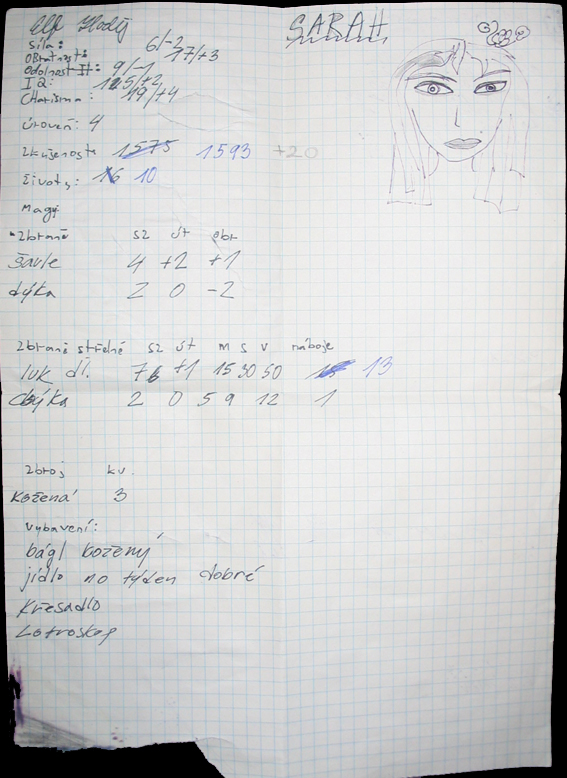 Elf Zloděj
SARAH
síla: 6/-2
Obratnost: 17/+3
Odolnost: 9/-1
IQ: 15/+2
Charisma: 19/+4
úroveň: 4
Zkušenosti 1575 1593 +20
Životy: 16 10
Magy:
Zbraně sz út obr
šavle 4 +2 +1
dýka 2 0 -2
Zbraně střelné sz út m s v náboje
luk dl. 7 +1 15 30 50 13
dýka 2 0 5 9 12 1
Zbroj kv.
Kožená 3
Vybavení:
bágl kožený
jídlo na týden dobré
Křesadlo
Lotroskop